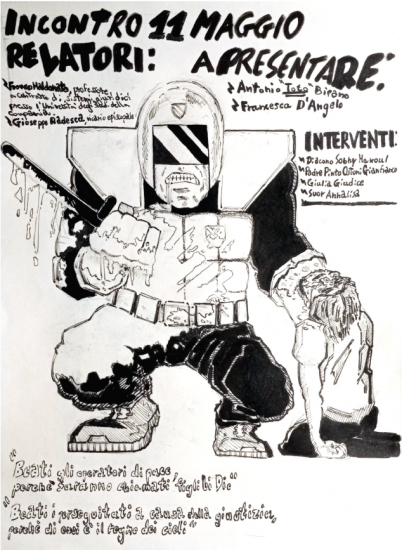 INCONTRO 11 MAGGIO
RELATORI:
Franco Maldonato, professore
a contratto di sistemi giuridici
presso l'Università degli studi della
Campania
Giuseppe Radesca, vicario episcopale
A PRESENTARE:
Antonio "Totò" Birano
Francesca D'Angelo
INTERVENTI:
Diacono Sobhy
Padre Pinto Gianfranco
Giulia Giudice
Suor Annalisa
"Beati gli operatori di pace,
perchè saranno chiamati figli di Dio"
"Beati i perseguitati a causa della giustizia,
perché di essi è il regno dei cieli"